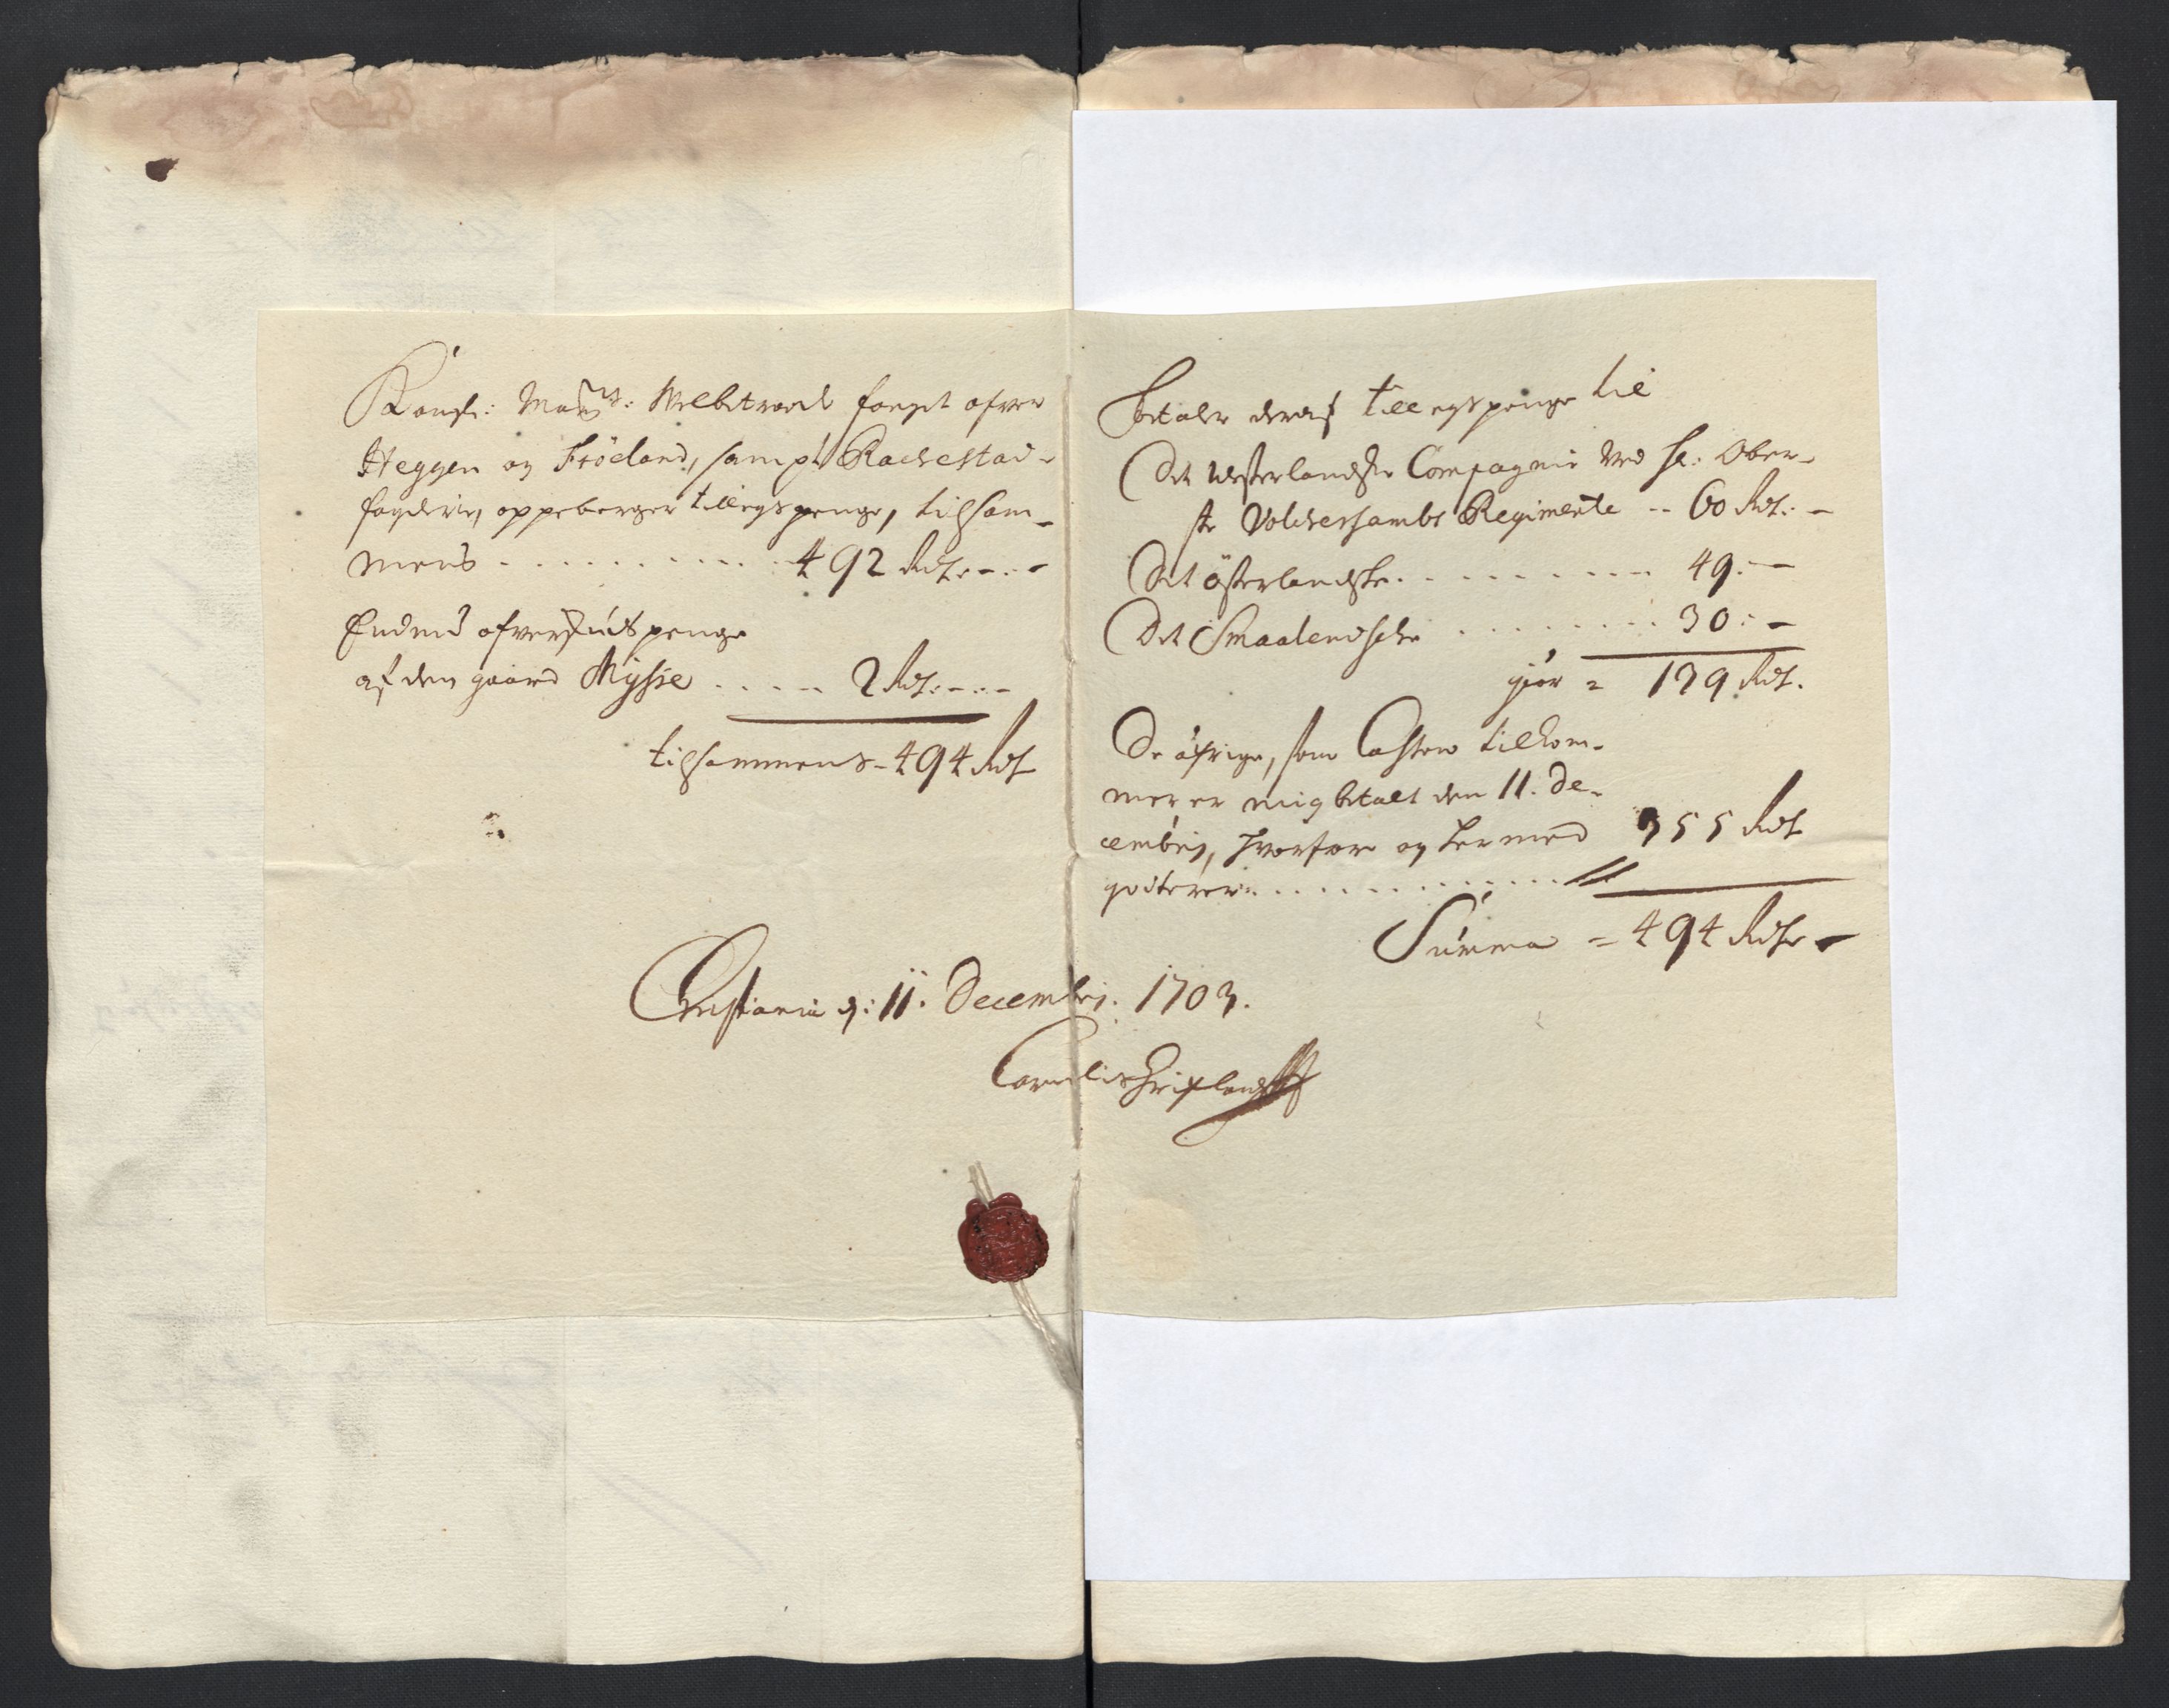 Kongl: Mayts: Welbetroed foegt ofver
Heggen og Fröeland, sampt Rachestad
fogderie, oppeberger tillegs penge, tilsam-
mens . . . . . . . . . 492 Rdr:-:-
Endnu ofver
penge
af den gaard Mysse . . . . . 2 Rdr:-:-
tilsammens - 494 Rdr
betaler deraf tillegs penge til
Det Westerlandske Compagnie ved Hr: Ober-
ste Volchersambs Regimente -- 60 Rdr:-
Det österlandske . . . . . . . . 49:-
Det Smaalendsche . . . . . . . . 30:-
giör = 139 Rdr.
De öfrige, som Casten tilkom-
mer er mig betalt den 11. De-
cembris, hvorfore og hermed 355 Rdr
qviterer . . . . . . . . . . .
Summa = 494 Rdr -
Christiania d: 11. Decembris. 1703.
Cornelis